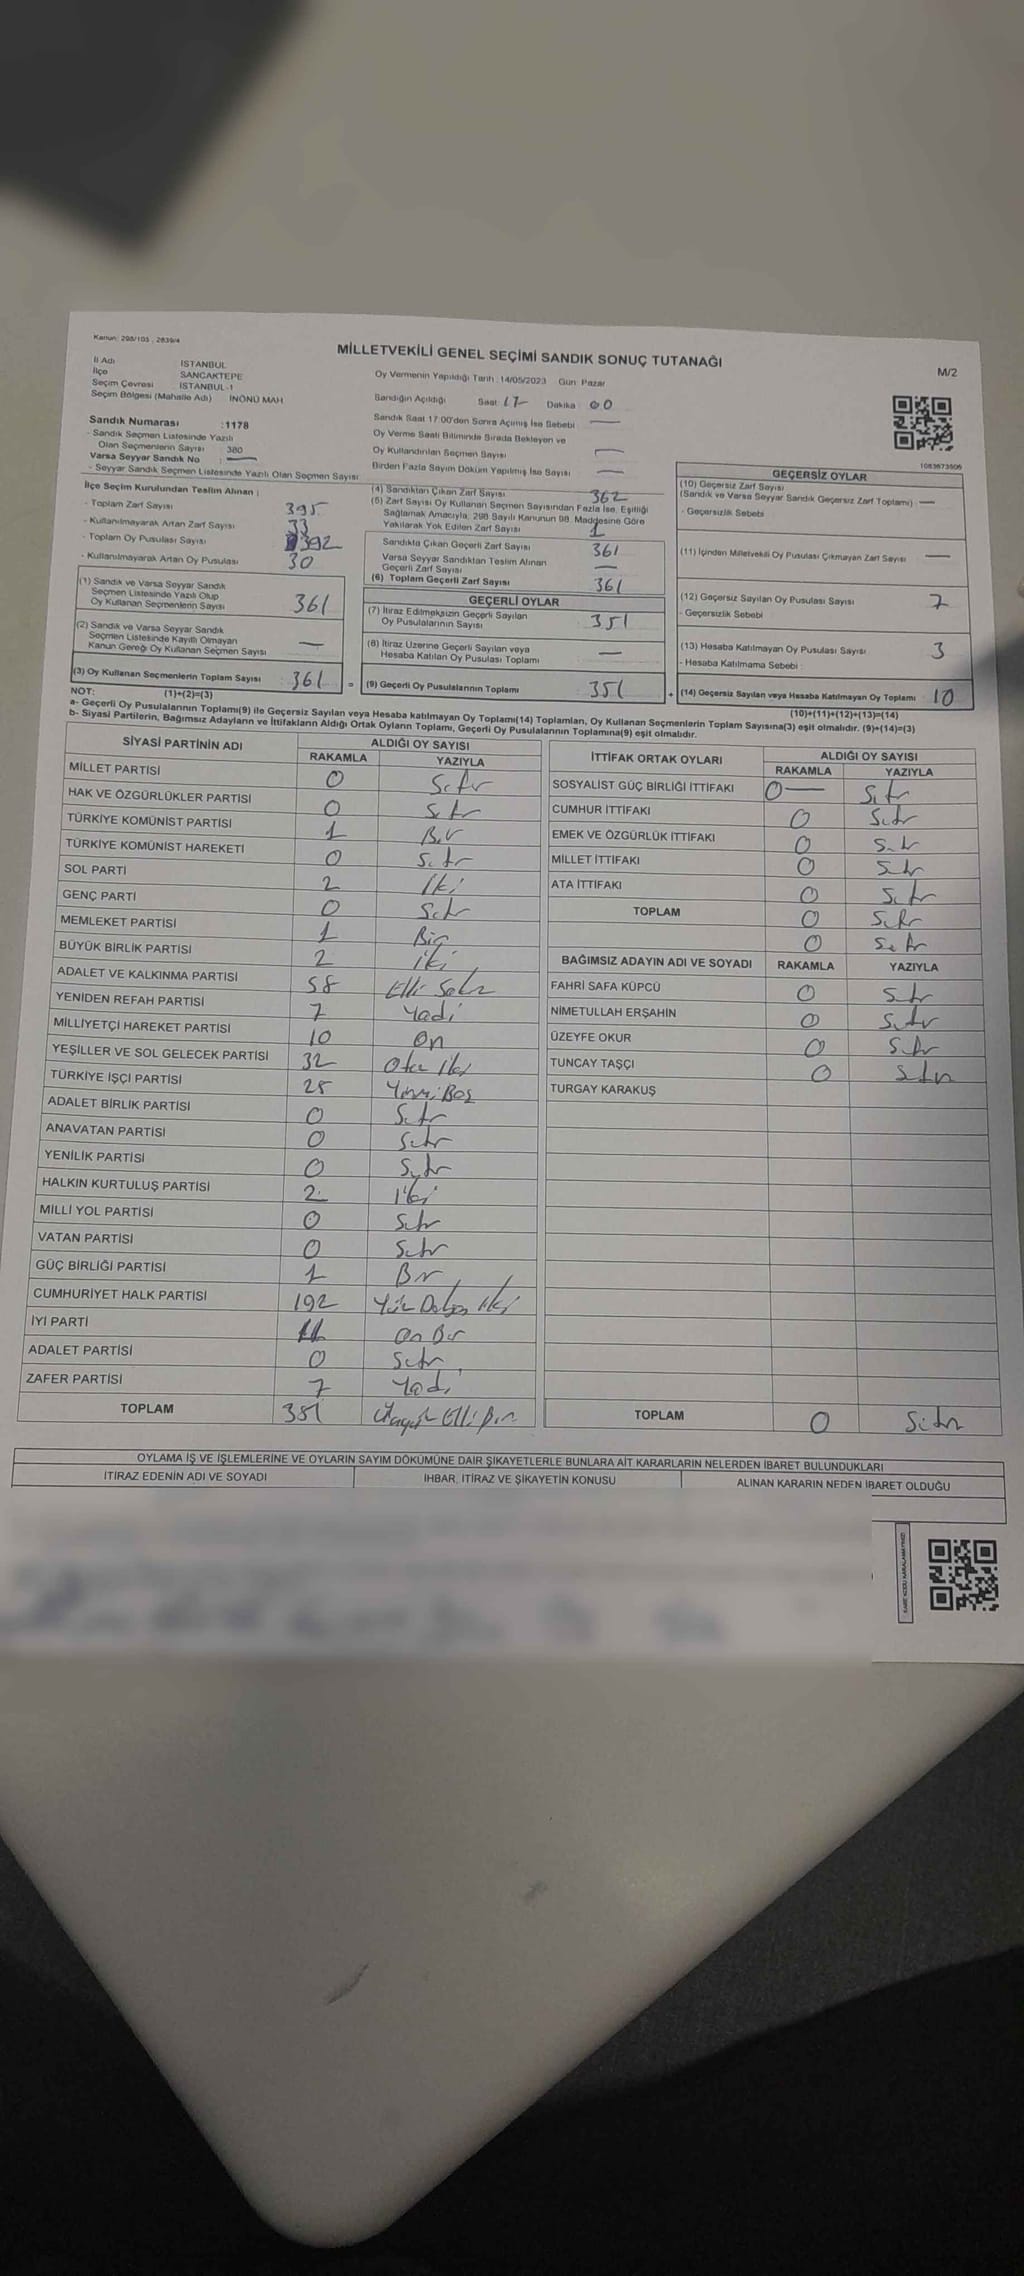 Kanun: 298/103 , 2839/4
MİLLETVEKİLİ GENEL SEÇİMİ SANDIK SONUÇ TUTANAĞI
M/2
İl Adı İSTANBUL
İlçe SANCAKTEPE
Seçim Çevresi İSTANBUL-1
Seçim Bölgesi (Mahalle Adı) İNÖNÜ MAH
Oy Vermenin Yapıldığı Tarih : 14/05/2023 Gün: Pazar
Sandığın Açıldığı Saat 17 Dakika 00
Sandık Saat 17:00'den Sonra Açılmış İse Sebebi
Oy Verme Saati Bitiminde Sırada Bekleyen ve
Oy Kullandırılan Seçmen Sayısı
Birden Fazla Sayım Döküm Yapılmış İse Sayısı
Sandık Numarası :1178
- Sandık Seçmen Listesinde Yazılı
Olan Seçmenlerin Sayısı 380
Varsa Seyyar Sandık No : —
- Seyyar Sandık Seçmen Listesinde Yazılı Olan Seçmen Sayısı
İlçe Seçim Kurulundan Teslim Alınan ;
- Toplam Zarf Sayısı 395
- Kullanılmayarak Artan Zarf Sayısı 33
- Toplam Oy Pusulası Sayısı 392
- Kullanılmayarak Artan Oy Pusulası 30
(1) Sandık ve Varsa Seyyar Sandık
Seçmen Listesinde Yazılı Olup
Oy Kullanan Seçmenlerin Sayısı 361
(2) Sandık ve Varsa Seyyar Sandık
Seçmen Listesinde Kayıtlı Olmayan
Kanun Gereği Oy Kullanan Seçmen Sayısı —
(3) Oy Kullanan Seçmenlerin Toplam Sayısı 361 =
(4) Sandıktan Çıkan Zarf Sayısı 362
(5) Zarf Sayısı Oy Kullanan Seçmen Sayısından Fazla İse, Eşitliği
Sağlamak Amacıyla, 298 Sayılı Kanunun 98. Maddesine Göre
Yakılarak Yok Edilen Zarf Sayısı 1
Sandıkta Çıkan Geçerli Zarf Sayısı 361
Varsa Seyyar Sandıktan Teslim Alınan
Geçerli Zarf Sayısı —
(6) Toplam Geçerli Zarf Sayısı 361
GEÇERLİ OYLAR
(7) İtiraz Edilmeksizin Geçerli Sayılan
Oy Pusulalarının Sayısı 351
(8) İtiraz Üzerine Geçerli Sayılan veya
Hesaba Katılan Oy Pusulası Toplamı —
(9) Geçerli Oy Pusulalarının Toplamı 351 +
1083673506
GEÇERSİZ OYLAR
(10) Geçersiz Zarf Sayısı
(Sandık ve Varsa Seyyar Sandık Geçersiz Zarf Toplamı) —
- Geçersizlik Sebebi
(11) İçinden Milletvekili Oy Pusulası Çıkmayan Zarf Sayısı —
(12) Geçersiz Sayılan Oy Pusulası Sayısı 7
- Geçersizlik Sebebi
(13) Hesaba Katılmayan Oy Pusulası Sayısı 3
- Hesaba Katılmama Sebebi :
(14) Geçersiz Sayılan veya Hesaba Katılmayan Oy Toplamı 10
NOT: (1)+(2)=(3) (10)+(11)+(12)+(13)=(14)
a- Geçerli Oy Pusulalarının Toplamı(9) ile Geçersiz Sayılan veya Hesaba katılmayan Oy Toplamı(14) Toplamları, Oy Kullanan Seçmenlerin Toplam Sayısına(3) eşit olmalıdır. (9)+(14)=(3)
b- Siyasi Partilerin, Bağımsız Adayların ve İttifakların Aldığı Ortak Oyların Toplamı, Geçerli Oy Pusulalarının Toplamına(9) eşit olmalıdır.
SİYASİ PARTİNİN ADI ALDIĞI OY SAYISI
RAKAMLA YAZIYLA
MİLLET PARTİSİ 0 Sıfır
HAK VE ÖZGÜRLÜKLER PARTİSİ 0 Sıfır
TÜRKİYE KOMÜNİST PARTİSİ 1 Bir
TÜRKİYE KOMÜNİST HAREKETİ 0 Sıfır
SOL PARTİ 2 İki
GENÇ PARTİ 0 Sıfır
MEMLEKET PARTİSİ 1 Bir
BÜYÜK BİRLİK PARTİSİ 2 İki
ADALET VE KALKINMA PARTİSİ 58 Elli Sekiz
YENİDEN REFAH PARTİSİ 7 Yedi
MİLLİYETÇİ HAREKET PARTİSİ 10 On
YEŞİLLER VE SOL GELECEK PARTİSİ 32 Otuz İki
TÜRKİYE İŞÇİ PARTİSİ 25 Yirmi Beş
ADALET BİRLİK PARTİSİ 0 Sıfır
ANAVATAN PARTİSİ 0 Sıfır
YENİLİK PARTİSİ 0 Sıfır
HALKIN KURTULUŞ PARTİSİ 2 İki
MİLLİ YOL PARTİSİ 0 Sıfır
VATAN PARTİSİ 0 Sıfır
GÜÇ BİRLİĞİ PARTİSİ 1 Bir
CUMHURİYET HALK PARTİSİ 192 Yüz Doksan İki
İYİ PARTİ 11 On Bir
ADALET PARTİSİ 0 Sıfır
ZAFER PARTİSİ 7 Yedi
TOPLAM 351 Üçyüz Elli Bir
İTTİFAK ORTAK OYLARI ALDIĞI OY SAYISI
RAKAMLA YAZIYLA
SOSYALİST GÜÇ BİRLİĞİ İTTİFAKI 0 Sıfır
CUMHUR İTTİFAKI 0 Sıfır
EMEK VE ÖZGÜRLÜK İTTİFAKI 0 Sıfır
MİLLET İTTİFAKI 0 Sıfır
ATA İTTİFAKI 0 Sıfır
TOPLAM 0 Sıfır
0 Sıfır
BAĞIMSIZ ADAYIN ADI VE SOYADI RAKAMLA YAZIYLA
FAHRİ SAFA KÜPCÜ 0 Sıfır
NİMETULLAH ERŞAHİN 0 Sıfır
ÜZEYFE OKUR 0 Sıfır
TUNCAY TAŞÇI 0 Sıfır
TURGAY KARAKUŞ
TOPLAM 0 Sıfır
OYLAMA İŞ VE İŞLEMLERİNE VE OYLARIN SAYIM DÖKÜMÜNE DAİR ŞİKAYETLERLE BUNLARA AİT KARARLARIN NELERDEN İBARET BULUNDUKLARI
İTİRAZ EDENİN ADI VE SOYADI İHBAR, İTİRAZ VE ŞİKAYETİN KONUSU ALINAN KARARIN NEDEN İBARET OLDUĞU
KARE KODU KARALAMAYINIZ!